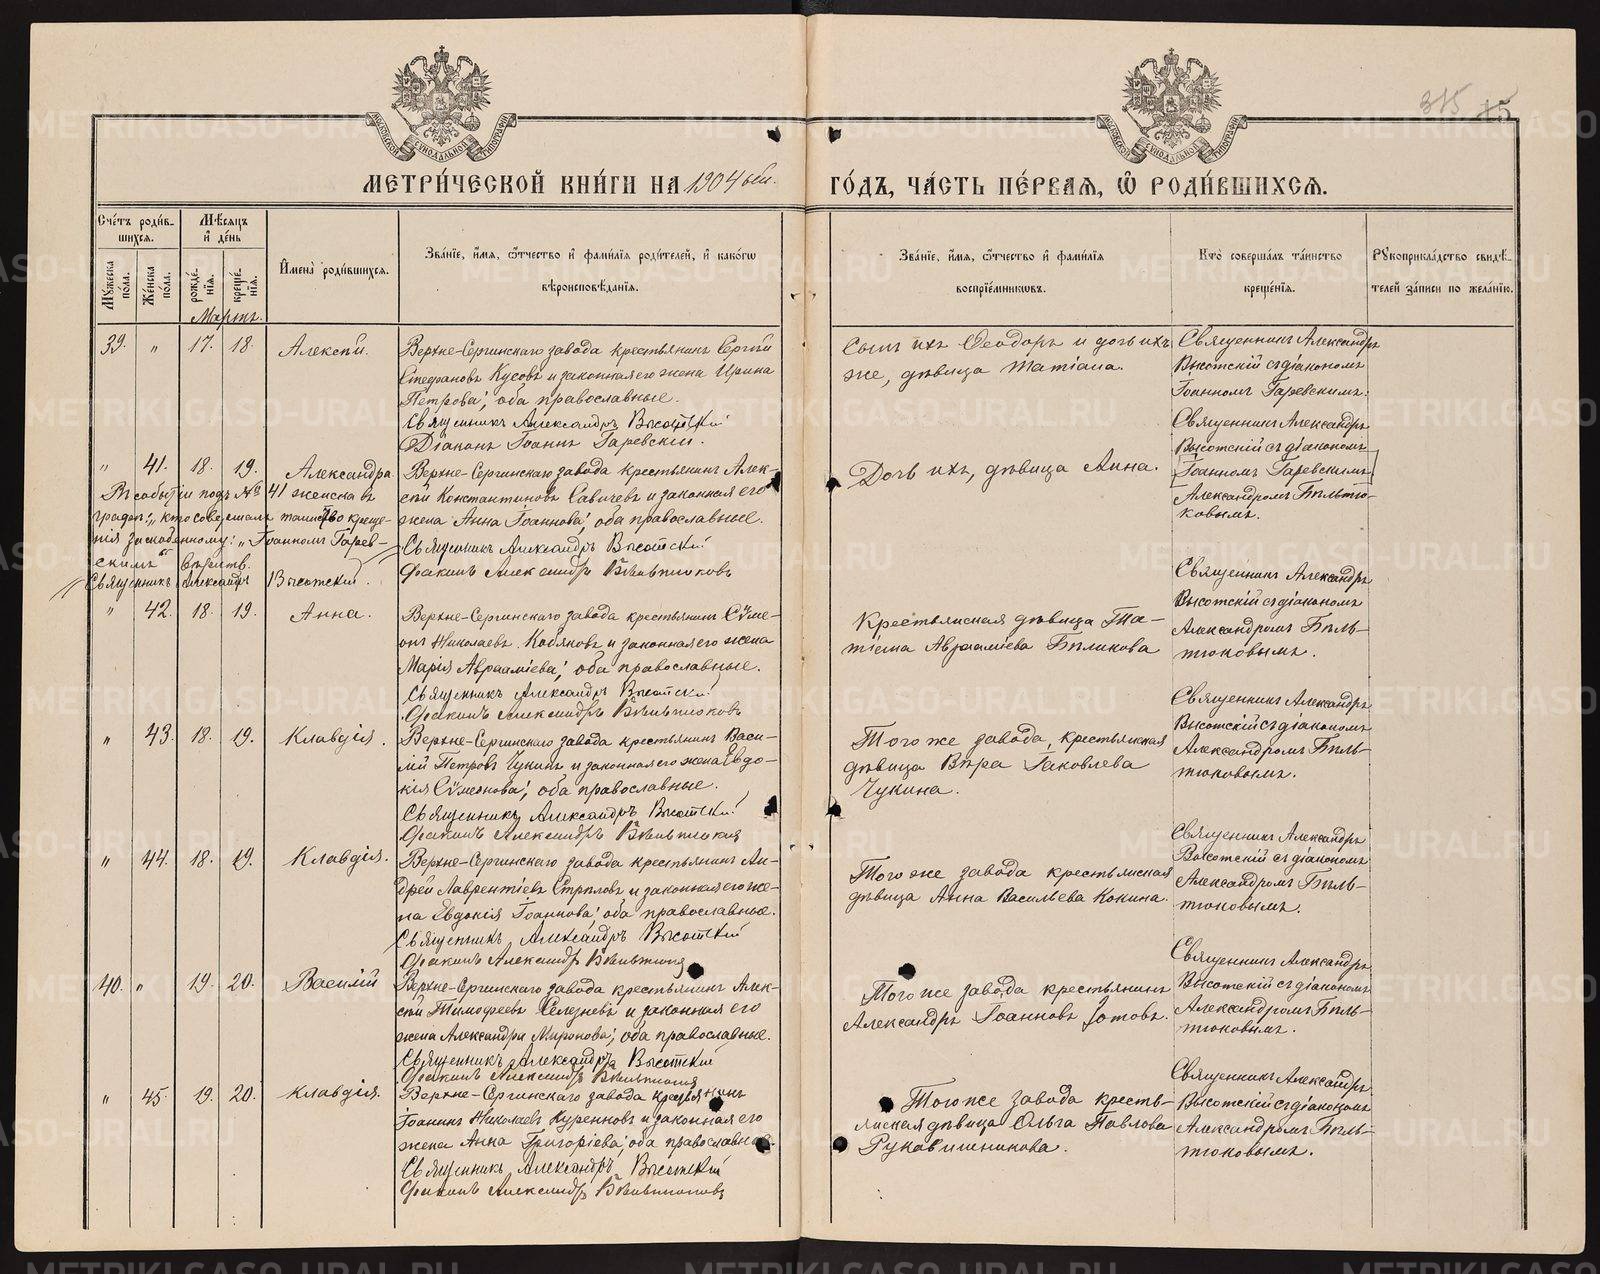 315 15
МЕТРИ́ЧЕСКОЙ КНИ́ГИ НА 1904 ый.
ГО́ДЪ, ЧА́СТЬ ПЕ́РВАЯ, Ѿ РОДИ́ВШИХСЯ.
Сче́тъ роди́в-
шихся.
Мѣ́сяцъ
и̑ де́нь
Му́жеска
по́ла.
Же́нска
по́ла.
рожде́-
нїя.
креще́-
нїя.
И̑мена̀ роди́вшихся.
Зва́нїе, и̑мя, ѻтчество и̑ фами́лїя роди́телей, и̑ како́гѡ
вѣроисповѣ́данїя.
Зва́нїе, и̑мя, ѻтчество и̑ фами́лїя
воспрїе́мникѡвъ.
Кто̀ соверша́лъ та́инство
креще́нїя.
Рꙋкоприкла́дство свидѣ́-
телей за́писи по жела́нїю.
Мартъ.
39. „ 17. 18. Алексѣй.
Верхне-Сергинскаго завода крестьянинъ Сергѣй
Стефановъ Кусовъ и законная его жена Ирина
Петрова; оба православные.
Священникъ Александръ Высотскій
Діаконъ Іоаннъ Гаревскій.
Сынъ ихъ Ѳеодоръ и дочь ихъ
же, дѣвица Татіана.
Священникъ Александръ
Высотскій съ діакономъ
Іоанномъ Гаревскимъ.
„ 41. 18. 19. Александра
Верхне-Сергинскаго завода крестьянинъ Алек-
сѣй Константиновъ Савичевъ и законная его
жена Анна Іоаннова; оба православные.
Священникъ Александръ Высотскій
Діаконъ Александръ Бѣльтюковъ
Дочь ихъ, дѣвица Анна.
Священникъ Александръ
Высотскій съ діакономъ
Іоанномъ Гаревскимъ
Александромъ Бѣльтю-
ковымъ.
Въ событіи подъ № 41 женска въ
графѣ: „кто совершалъ таинство креще-
нія“ зачеркнутому: „Іоанномъ Гарев-
скимъ“
Священникъ Александръ Высотскій.
„ 42. 18. 19. Анна.
Верхне-Сергинскаго завода крестьянинъ Сѵме-
онъ Николаевъ Кобяковъ и законная его жена
Марія Авраамiева; оба православные.
Священникъ Александръ Высотскій
Діаконъ Александръ Бѣльтюковъ
Крестьянская дѣвица Та-
тіана Авраамiева Бѣликова
Священникъ Александръ
Высотскій съ діакономъ
Александромъ Бѣль-
тюковымъ.
„ 43. 18. 19. Клавдія.
Верхне-Сергинскаго завода крестьянинъ Васи-
лій Петровъ Чукинъ и законная его жена Евдо-
кія Сѵмеонова; оба православные.
Священникъ Александръ Высотскій
Діаконъ Александръ Бѣльтюковъ
Того же завода, крестьянская
дѣвица Вѣра Іаковлева
Чукина.
Священникъ Александръ
Высотскій съ діакономъ
Александромъ Бѣль-
тюковымъ.
„ 44. 18. 19. Клавдія.
Верхне-Сергинскаго завода крестьянинъ Ан-
дрей Лаврентіевъ Стрѣловъ и законная его же-
на Евдокія Іоаннова; оба православные.
Священникъ Александръ Высотскій
Діаконъ Александръ Бѣльтюковъ
Того же завода крестьянская
дѣвица Анна Васильева Кокина.
Священникъ Александръ
Высотскій съ діакономъ
Александромъ Бѣль-
тюковымъ.
40. „ 19. 20. Василій
Верхне-Сергинскаго завода крестьянинъ Алек-
сѣй Тимофеевъ Селезневъ и законная его
жена Александра Миронова; оба православные.
Священникъ Александръ Высотскій
Діаконъ Александръ Бѣльтюковъ
Того же завода крестьянинъ
Александръ Іоанновъ Зотовъ.
Священникъ Александръ
Высотскій съ діакономъ
Александромъ Бѣль-
тюковымъ.
„ 45. 19. 20. Клавдія.
Верхне-Сергинскаго завода крестьянинъ
Іоаннъ Николаевъ Куренновъ и законная его
жена Анна Григоріева; оба православные.
Священникъ Александръ Высотскій
Діаконъ Александръ Бѣльтюковъ
Того же завода кресть-
янская дѣвица Ольга Павлова
Рукавишникова.
Священникъ Александръ
Высотскій съ діакономъ
Александромъ Бѣль-
тюковымъ.
METRIKI.GASO-URAL.RU